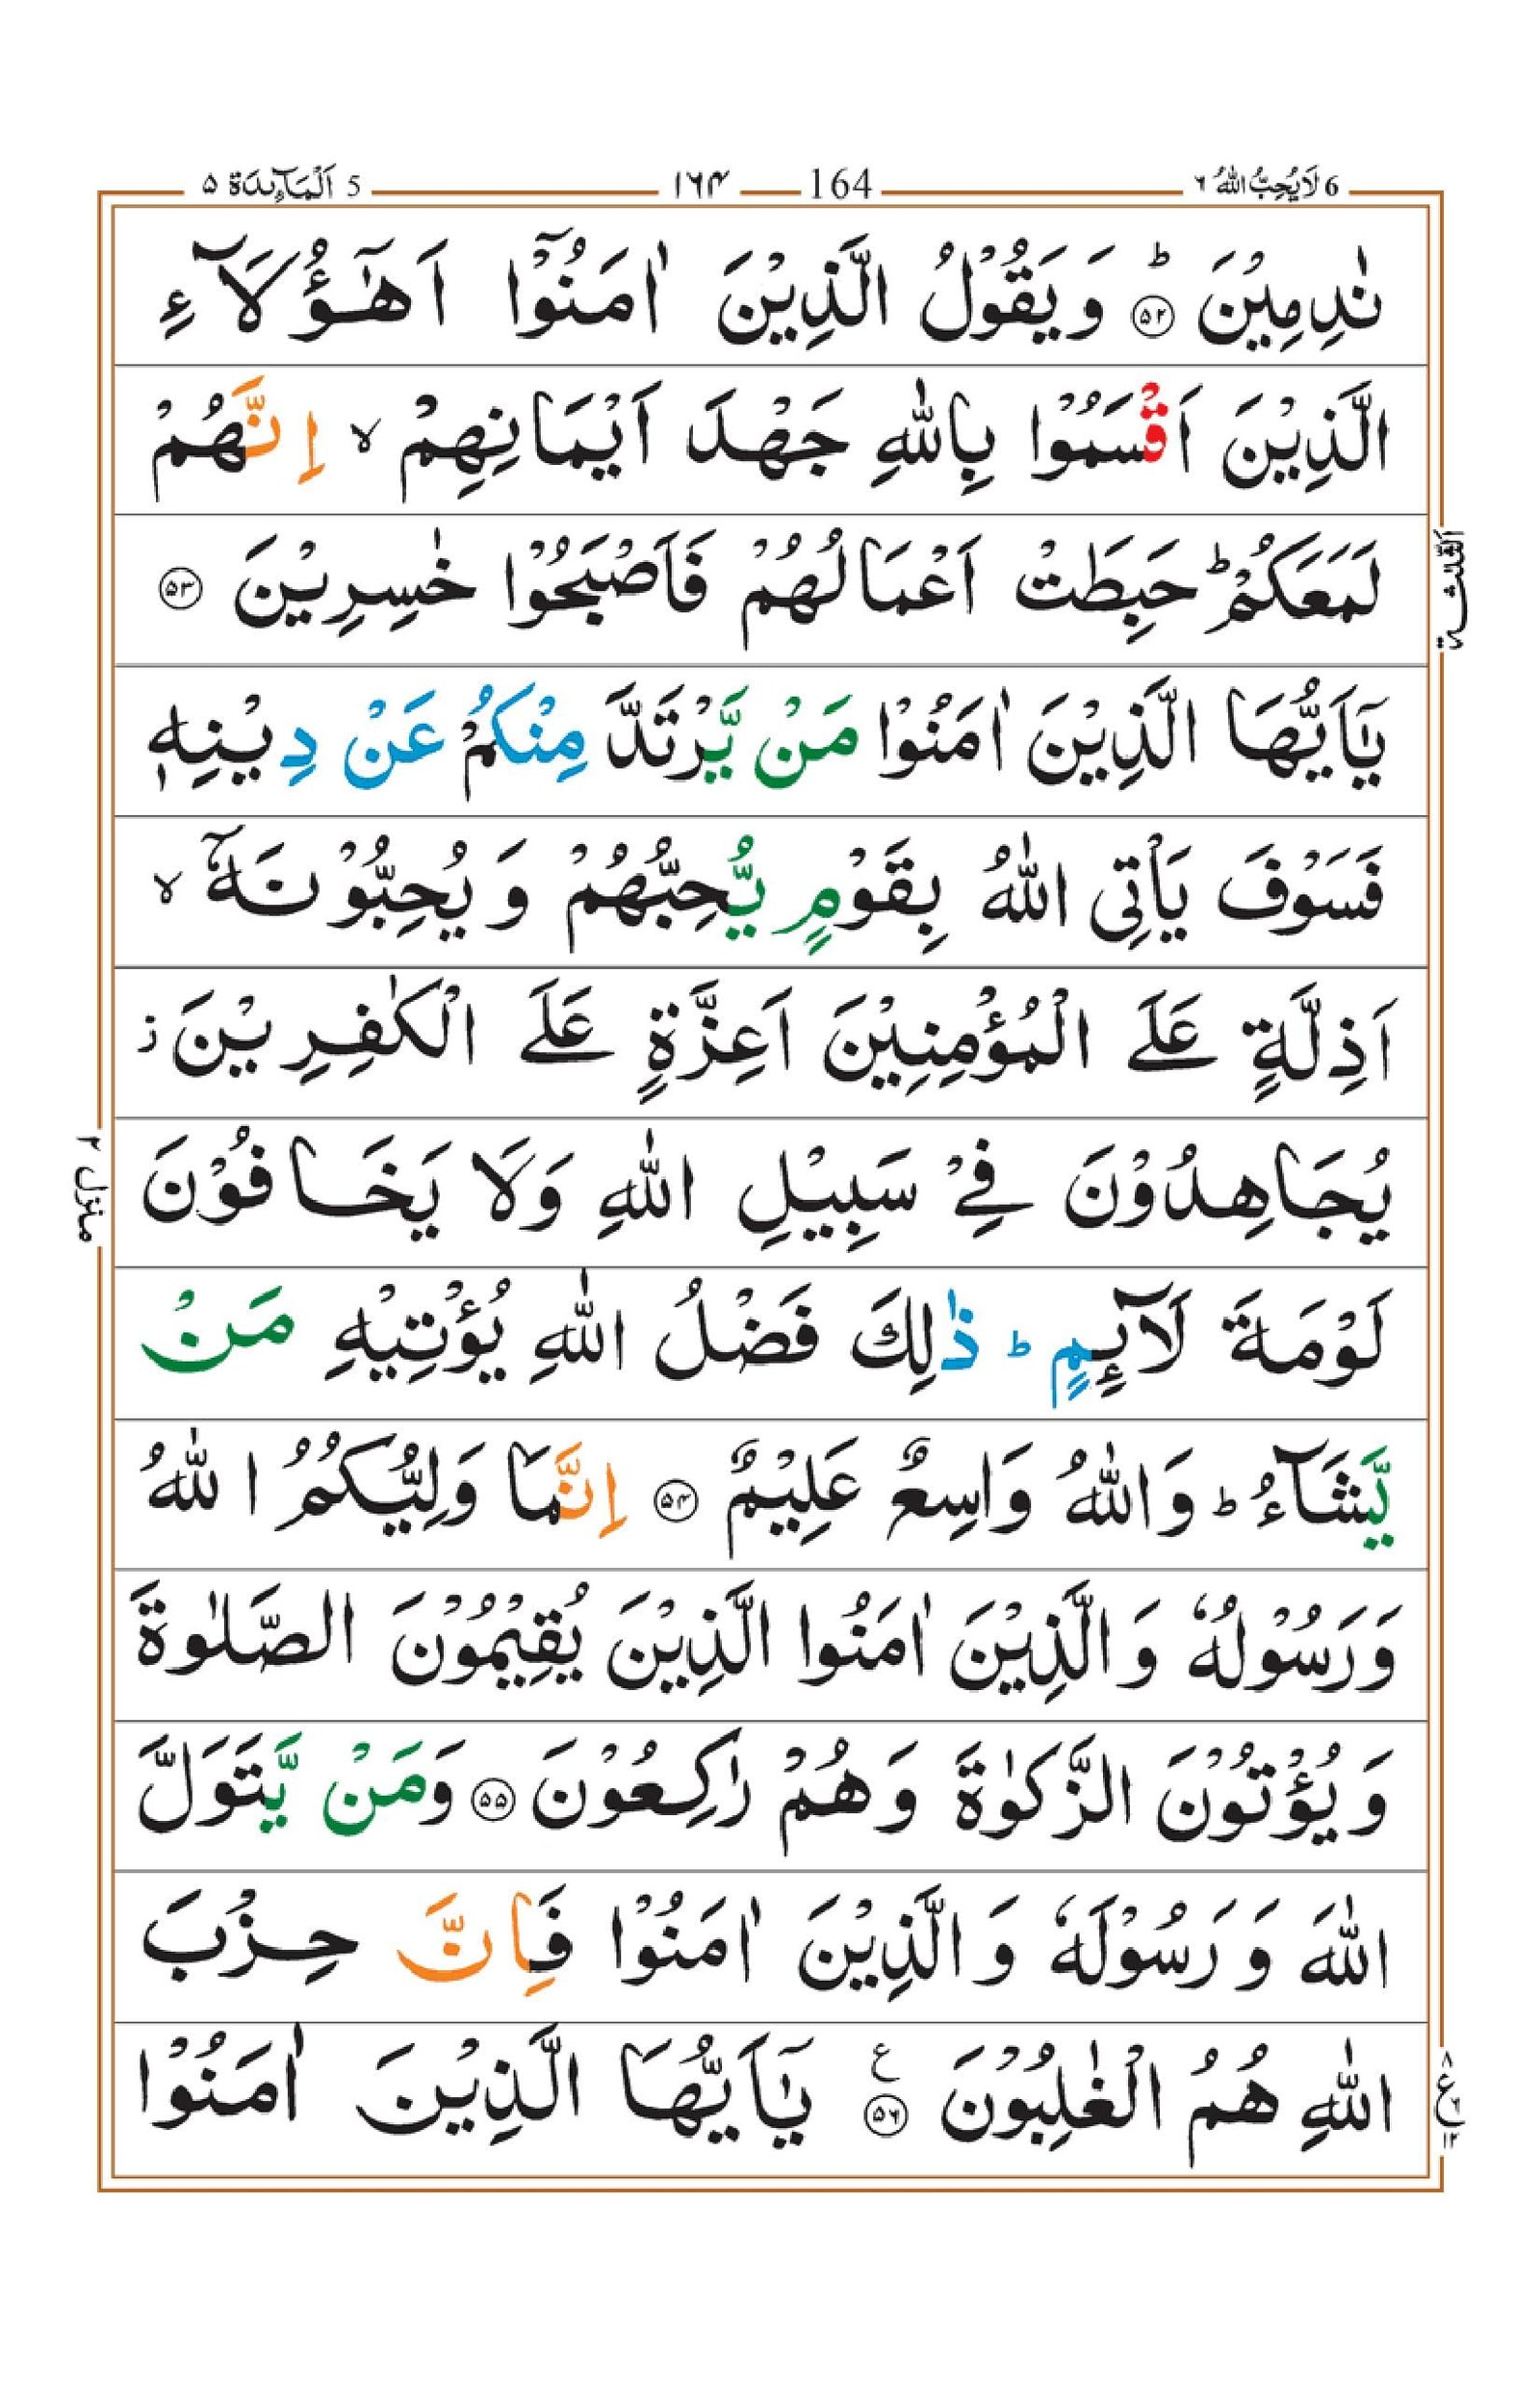 6 لَا يُحِبُّ اللهُ ٦ 164 ١٦٤ 5 اَلْمَآئِدَة ٥
نٰدِمِيْنَ ؕ ﴿۵۲﴾ وَيَقُوْلُ الَّذِيْنَ اٰمَنُوْۤا اَهٰٓؤُلَآءِ
الَّذِيْنَ اَقْسَمُوْا بِاللّٰهِ جَهْدَ اَيْمَانِهِمْ ۙ اِنَّهُمْ
لَمَعَكُمْ ؕ حَبِطَتْ اَعْمَالُهُمْ فَاَصْبَحُوْا خٰسِرِيْنَ ﴿۵۳﴾
الثلٰثة
يٰۤاَيُّهَا الَّذِيْنَ اٰمَنُوْا مَنْ يَّرْتَدَّ مِنْكُمْ عَنْ دِيْنِهٖ
فَسَوْفَ يَاْتِى اللّٰهُ بِقَوْمٍ يُّحِبُّهُمْ وَيُحِبُّوْنَهٗۤ ۙ
اَذِلَّةٍ عَلَى الْمُؤْمِنِيْنَ اَعِزَّةٍ عَلَى الْكٰفِرِيْنَ ز
يُجَاهِدُوْنَ فِىْ سَبِيْلِ اللّٰهِ وَلَا يَخَافُوْنَ
منزل ٢
لَوْمَةَ لَآئِمٍ ؕ ذٰلِكَ فَضْلُ اللّٰهِ يُؤْتِيْهِ مَنْ
يَّشَآءُ ؕ وَاللّٰهُ وَاسِعٌ عَلِيْمٌ ﴿۵۴﴾ اِنَّمَا وَلِيُّكُمُ اللّٰهُ
وَرَسُوْلُهٗ وَالَّذِيْنَ اٰمَنُوا الَّذِيْنَ يُقِيْمُوْنَ الصَّلٰوةَ
وَيُؤْتُوْنَ الزَّكٰوةَ وَهُمْ رٰكِعُوْنَ ﴿۵۵﴾ وَمَنْ يَّتَوَلَّ
اللّٰهَ وَرَسُوْلَهٗ وَالَّذِيْنَ اٰمَنُوْا فَاِنَّ حِزْبَ
اللّٰهِ هُمُ الْغٰلِبُوْنَ ﴿۵۶﴾ ع يٰۤاَيُّهَا الَّذِيْنَ اٰمَنُوْا
٨ ع ٦ ١٢